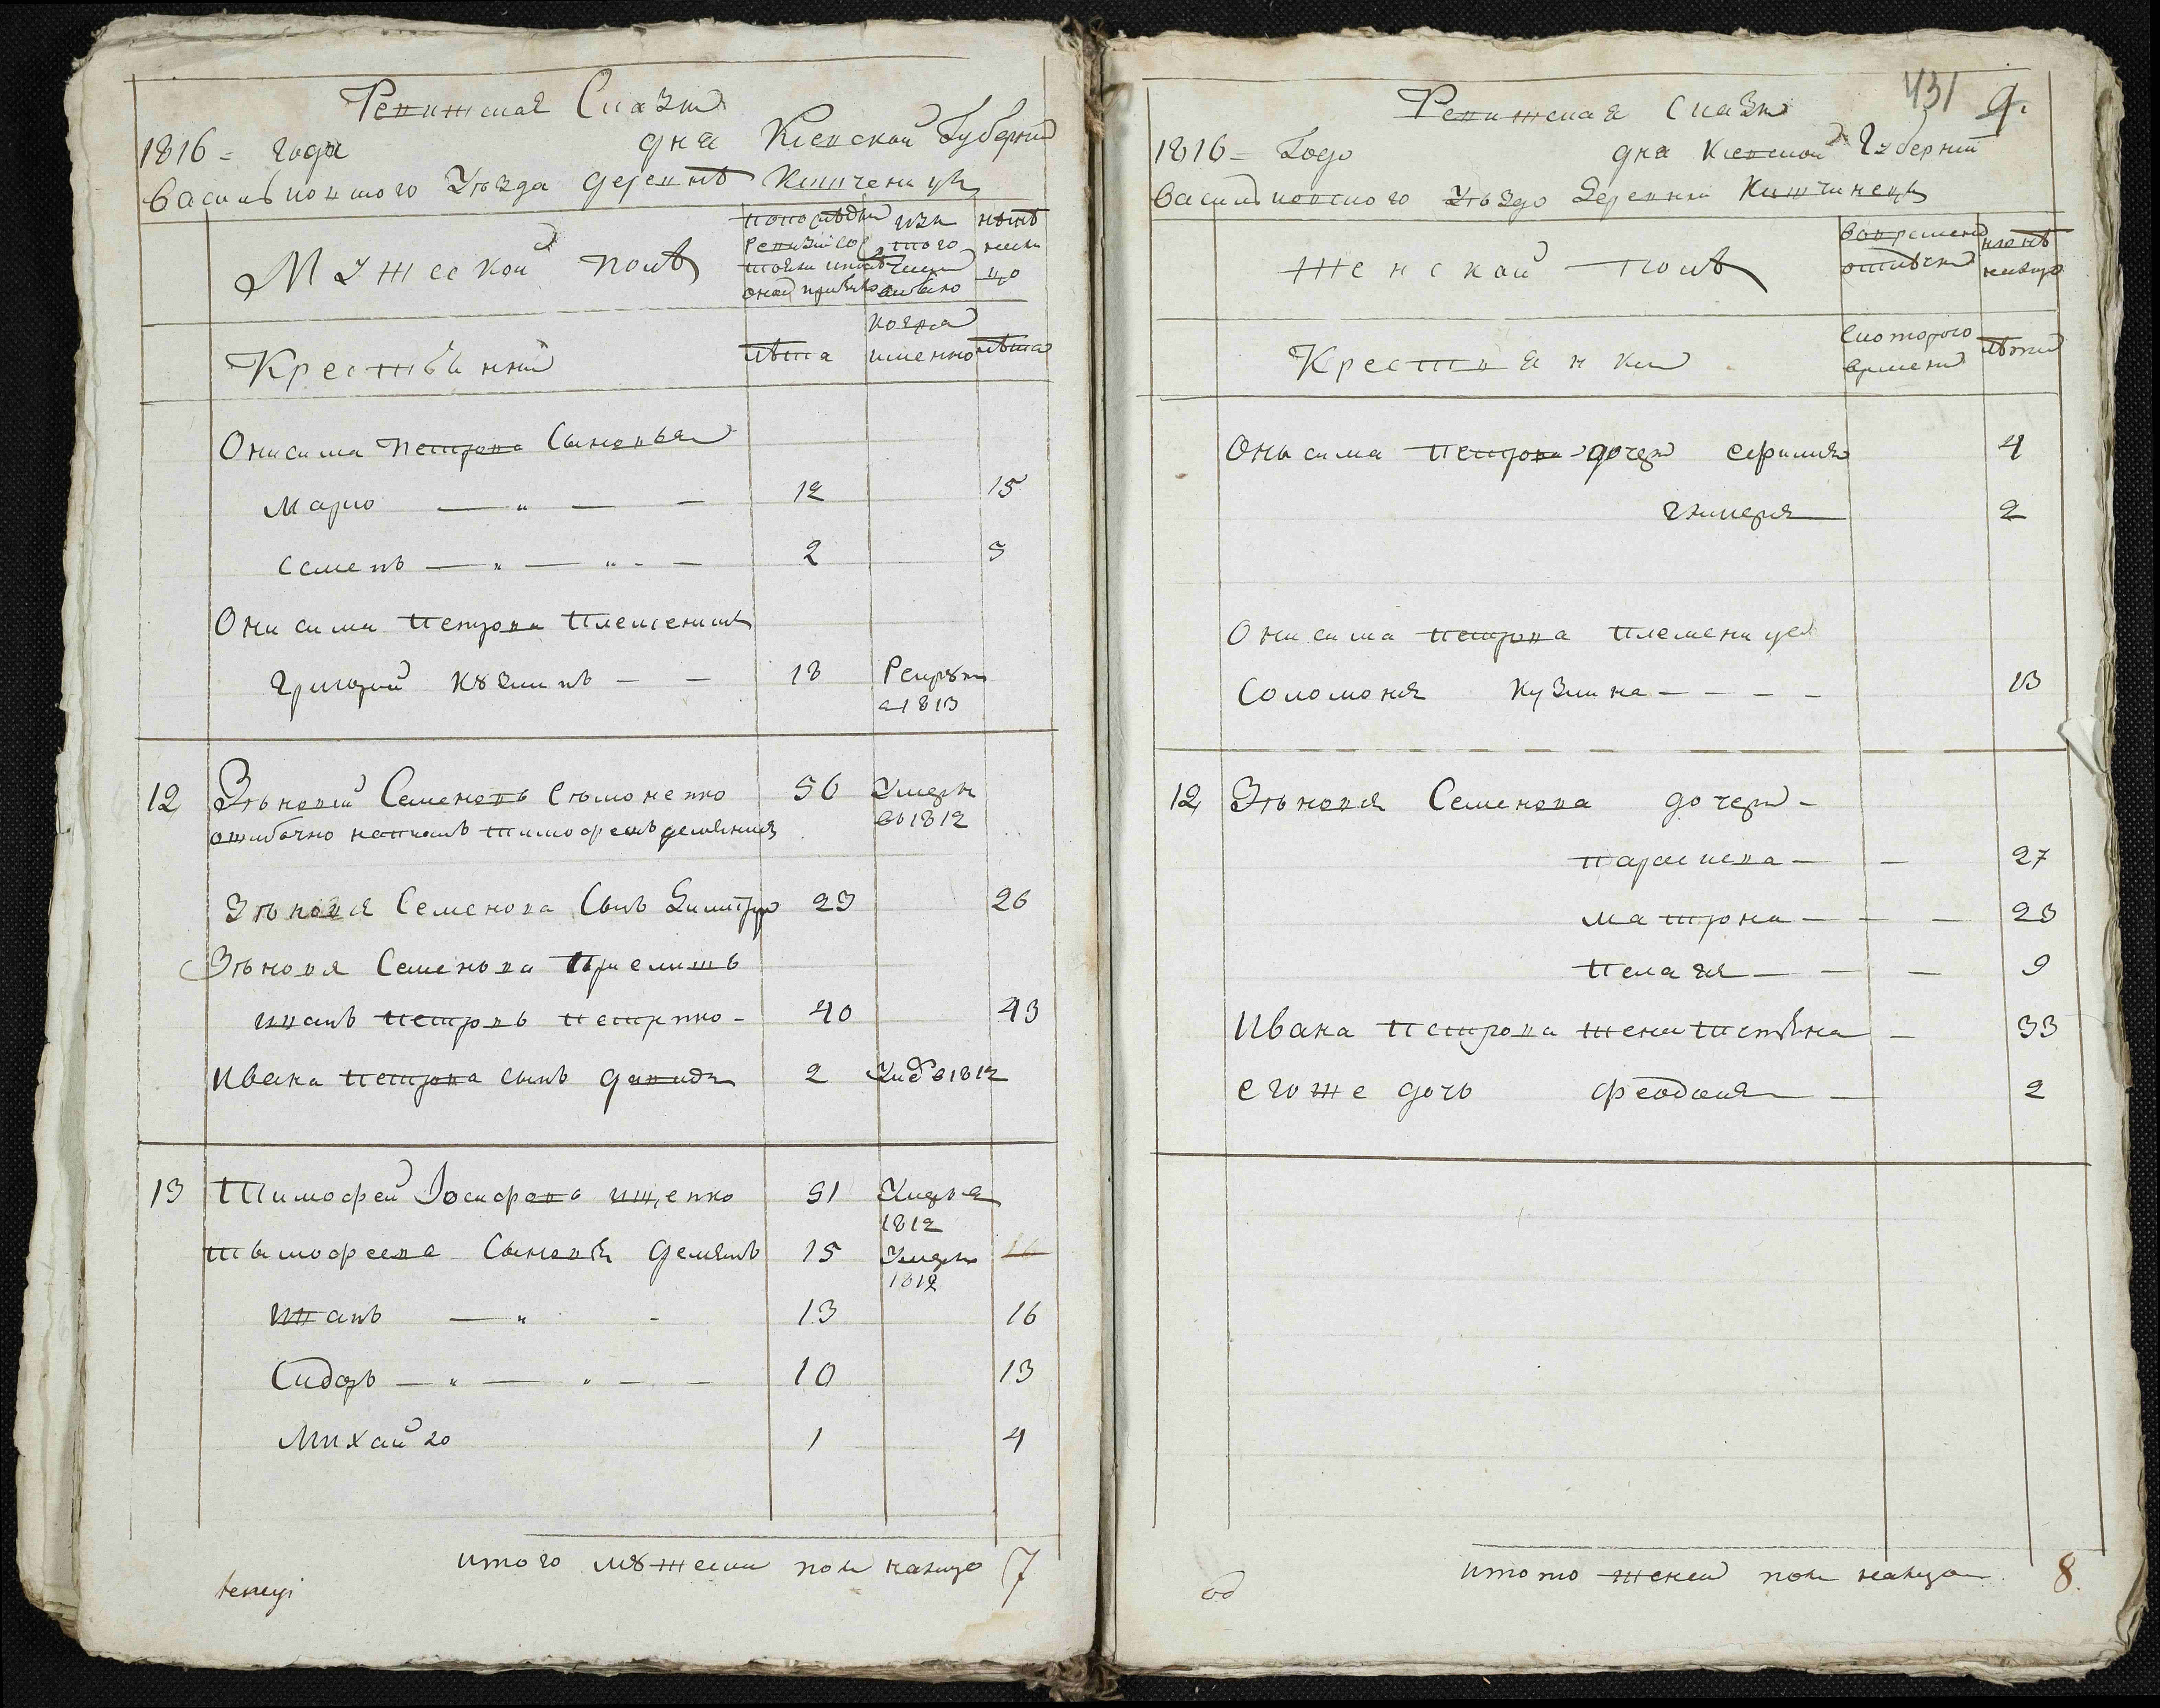 Ревижская Сказка
1816 = года дня Киевской Губернии
Васильковского Уезда деревнѣ
Мужеской полъ
по последней ревизии состояло и после оной прибыло
изъ того числа выбыло
нынѣ на лицо
Крестьянии
лѣта
когда именно
лѣта
Онисима Петрова Сыновья
Марко — „ — — 12 15
Семенъ — „ — „ - — 2 5
Онисима Петрова Племенникъ
Григорий Кузминъ — — 18 Рекрут в 1813
12 Зѣновий Семеновъ Симоненко 56 Умеръ въ 1812
ошибочно написанъ Тимофеемъ
Зѣновия Семенова Сынъ Димитрий 23 26
Зѣновия Семенова Приемышъ
Иванъ Петровъ Петренко - 40 43
Ивана Петрова сынъ Давидъ 2 Умеръ в 1812
13 Тимофей Иосифовъ Ищенко 51 Умеръ в 1812
Тымофеева Сыновья Демянъ 15 Умеръ 1812
Иванъ — „ - 13 16
Сидоръ — „ — „ — — 10 13
Михайло 1 4
итого мужеска пола налицо 7
431 9.
Ревижская Сказка
1816 = Года дня Киевской Губернии
Васильковского Уезда Деревни
Женской полъ
Во временной отлучке
нынѣ налицо
Крестьянки
С которого времени
лѣта
Онысима Петрова дочери Ефимия 4
Гликерия 2
Онисима Петрова Племеница
Соломония Кузмина — — — — 13
12 Зѣновия Семенова дочери -
Параскева — — 27
Матрона — — — 23
Пелагия — — — 9
Ивана Петрова жена Татьяна — 33
его же дочь Феодосия — 2
итого женска пола налицо 8.